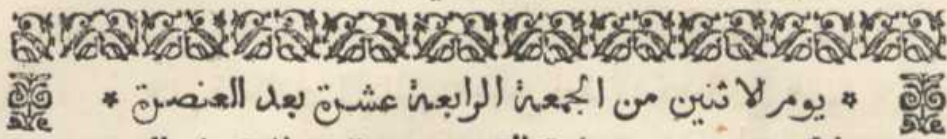 * يوم لاثنين من الجمعة الرابعة عشرة بعد العنصرة *